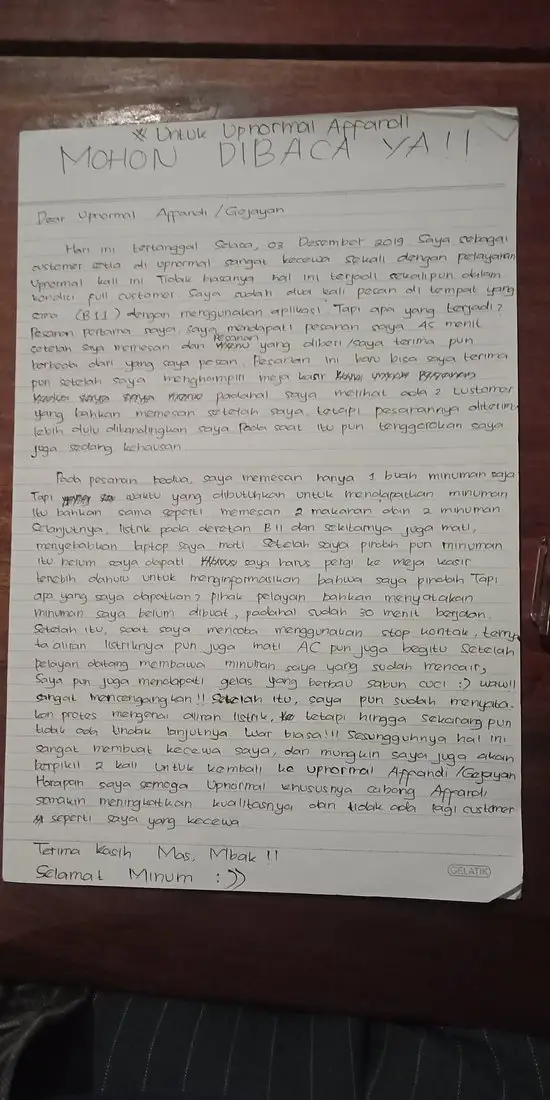 * Untuk Upnormal Affandi
MOHON DIBACA YA!!
Dear Upnormal Affandi / Gejayan
Hari ini tertanggal Selasa, 03 Desember 2019 Saya sebagai
customer setia di upnormal sangat kecewa sekali dengan pelayanan
Upnormal kali ini Tidak biasanya hal ini terjadi sekalipun dalam
kondisi full customer Saya sudah dua kali pesan di tempat yang
sama (B11) dengan menggunakan aplikasi. Tapi apa yang terjadi?
Pesanan pertama saya, saya mendapati pesanan saya 45 menit
setelah saya memesan dan Pesanan yang diberi/saya terima pun
berbeda dari yang saya pesan. Pesanan ini baru bisa saya terima
pun setelah saya menghampiri meja kasir
padahal saya melihat ada 2 customer
yang bahkan memesan setelah saya, tetapi pesanannya diterima
lebih dulu dibandingkan saya Pada saat itu pun tenggorokan saya
juga sedang kehausan
Pada pesanan kedua, saya memesan hanya 1 buah minuman saja
Tapi waktu yang dibutuhkan untuk mendapatkan minuman
itu bahkan sama seperti memesan 2 makanan dan 2 minuman
Selanjutnya, listrik pada deretan B11 dan sekitarnya juga mati,
menyebabkan laptop saya mati Setelah saya pindah pun minuman
itu belum saya dapati saya harus pergi ke meja kasir
terlebih dahulu untuk menginformasikan bahwa saya pindah Tapi
apa yang saya dapatkan? pihak pelayan bahkan menyatakan
minuman saya belum dibuat, padahal sudah 30 menit berjalan.
Setelah itu, saat saya mencoba menggunakan stop kontak, terny
ta aliran listriknya pun juga mati AC pun juga begitu Setelah
pelayan datang membawa minuman saya yang sudah mencair,
Saya pun juga mendapati gelas yang berbau sabun cuci :) waw!!
sangat mencengangkan!! Setelah itu, saya pun sudah menyata-
kan protes mengenai aliran listrik, tetapi hingga sekarang pun
tidak ada tindak lanjutnya. Luar biasa!!! Sesungguhnya hal ini
sangat membuat kecewa saya, dan mungkin saya juga akan
berpikir 2 kali untuk kembali ke upnormal Affandi / Gejayan
Harapan saya semoga Upnormal khususnya cabang Affandi
semakin meningkatkan kualitasnya dan tidak ada lagi customer
seperti saya yang kecewa
Terima kasih Mas, Mbak !!
Selamat Minum :))
GELATIK